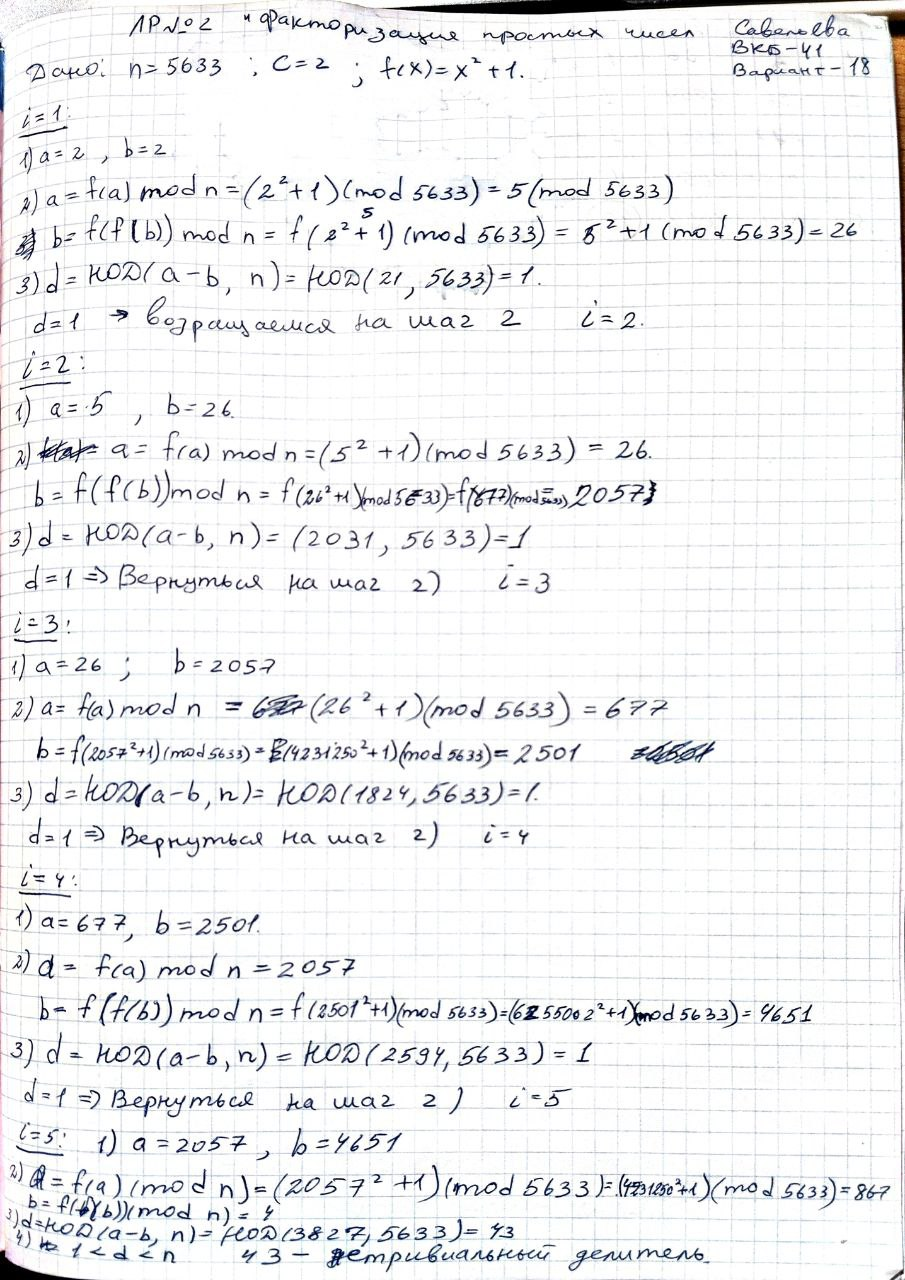 ЛР №2 "Факторизация простых чисел Савельева
ВКБ-41
Вариант-18
Дано: n=5633 ; C=2 ; f(x)=x²+1.
i=1:
1) a=2 , b=2
2) a=f(a) mod n=(2²+1)(mod 5633)=5(mod 5633)
5
b=f(f(b)) mod n=f(2²+1)(mod 5633)=5²+1(mod 5633)=26
3) d=НОД(a-b, n)=НОД(21, 5633)=1.
d=1 → возращаемся на шаг 2 i=2.
i=2:
1) a=5 , b=26.
2) a=f(a) mod n=(5²+1)(mod 5633)=26.
b=f(f(b))mod n=f(26²+1)(mod 5633)=f(677)(mod 5633)=2057
3) d=НОД(a-b, n)=(2031, 5633)=1
d=1 => Вернуться на шаг 2) i=3
i=3:
1) a=26 ; b=2057
2) a=f(a) mod n = (26²+1)(mod 5633)=677
b=f(2057²+1)(mod 5633)=(4231250²+1)(mod 5633)=2501
3) d=НОД(a-b, n)=НОД(1824, 5633)=1.
d=1 => Вернуться на шаг 2) i=4
i=4:
1) a=677, b=2501.
2) a=f(a) mod n=2057
b=f(f(b)) mod n=f(2501²+1)(mod 5633)=(6255002²+1)(mod 5633)=4651
3) d=НОД(a-b, n)=НОД(2594, 5633)=1
d=1 => Вернуться на шаг 2) i=5
i=5: 1) a=2057 , b=4651
2) a=f(a)(mod n)=(2057²+1)(mod 5633)=(4231250²+1)(mod 5633)=867
b=f(f(b))(mod n)=4
3) d=НОД(a-b, n)=НОД(3827, 5633)=43
4) 1<d<n 43 - нетривиальный делитель.